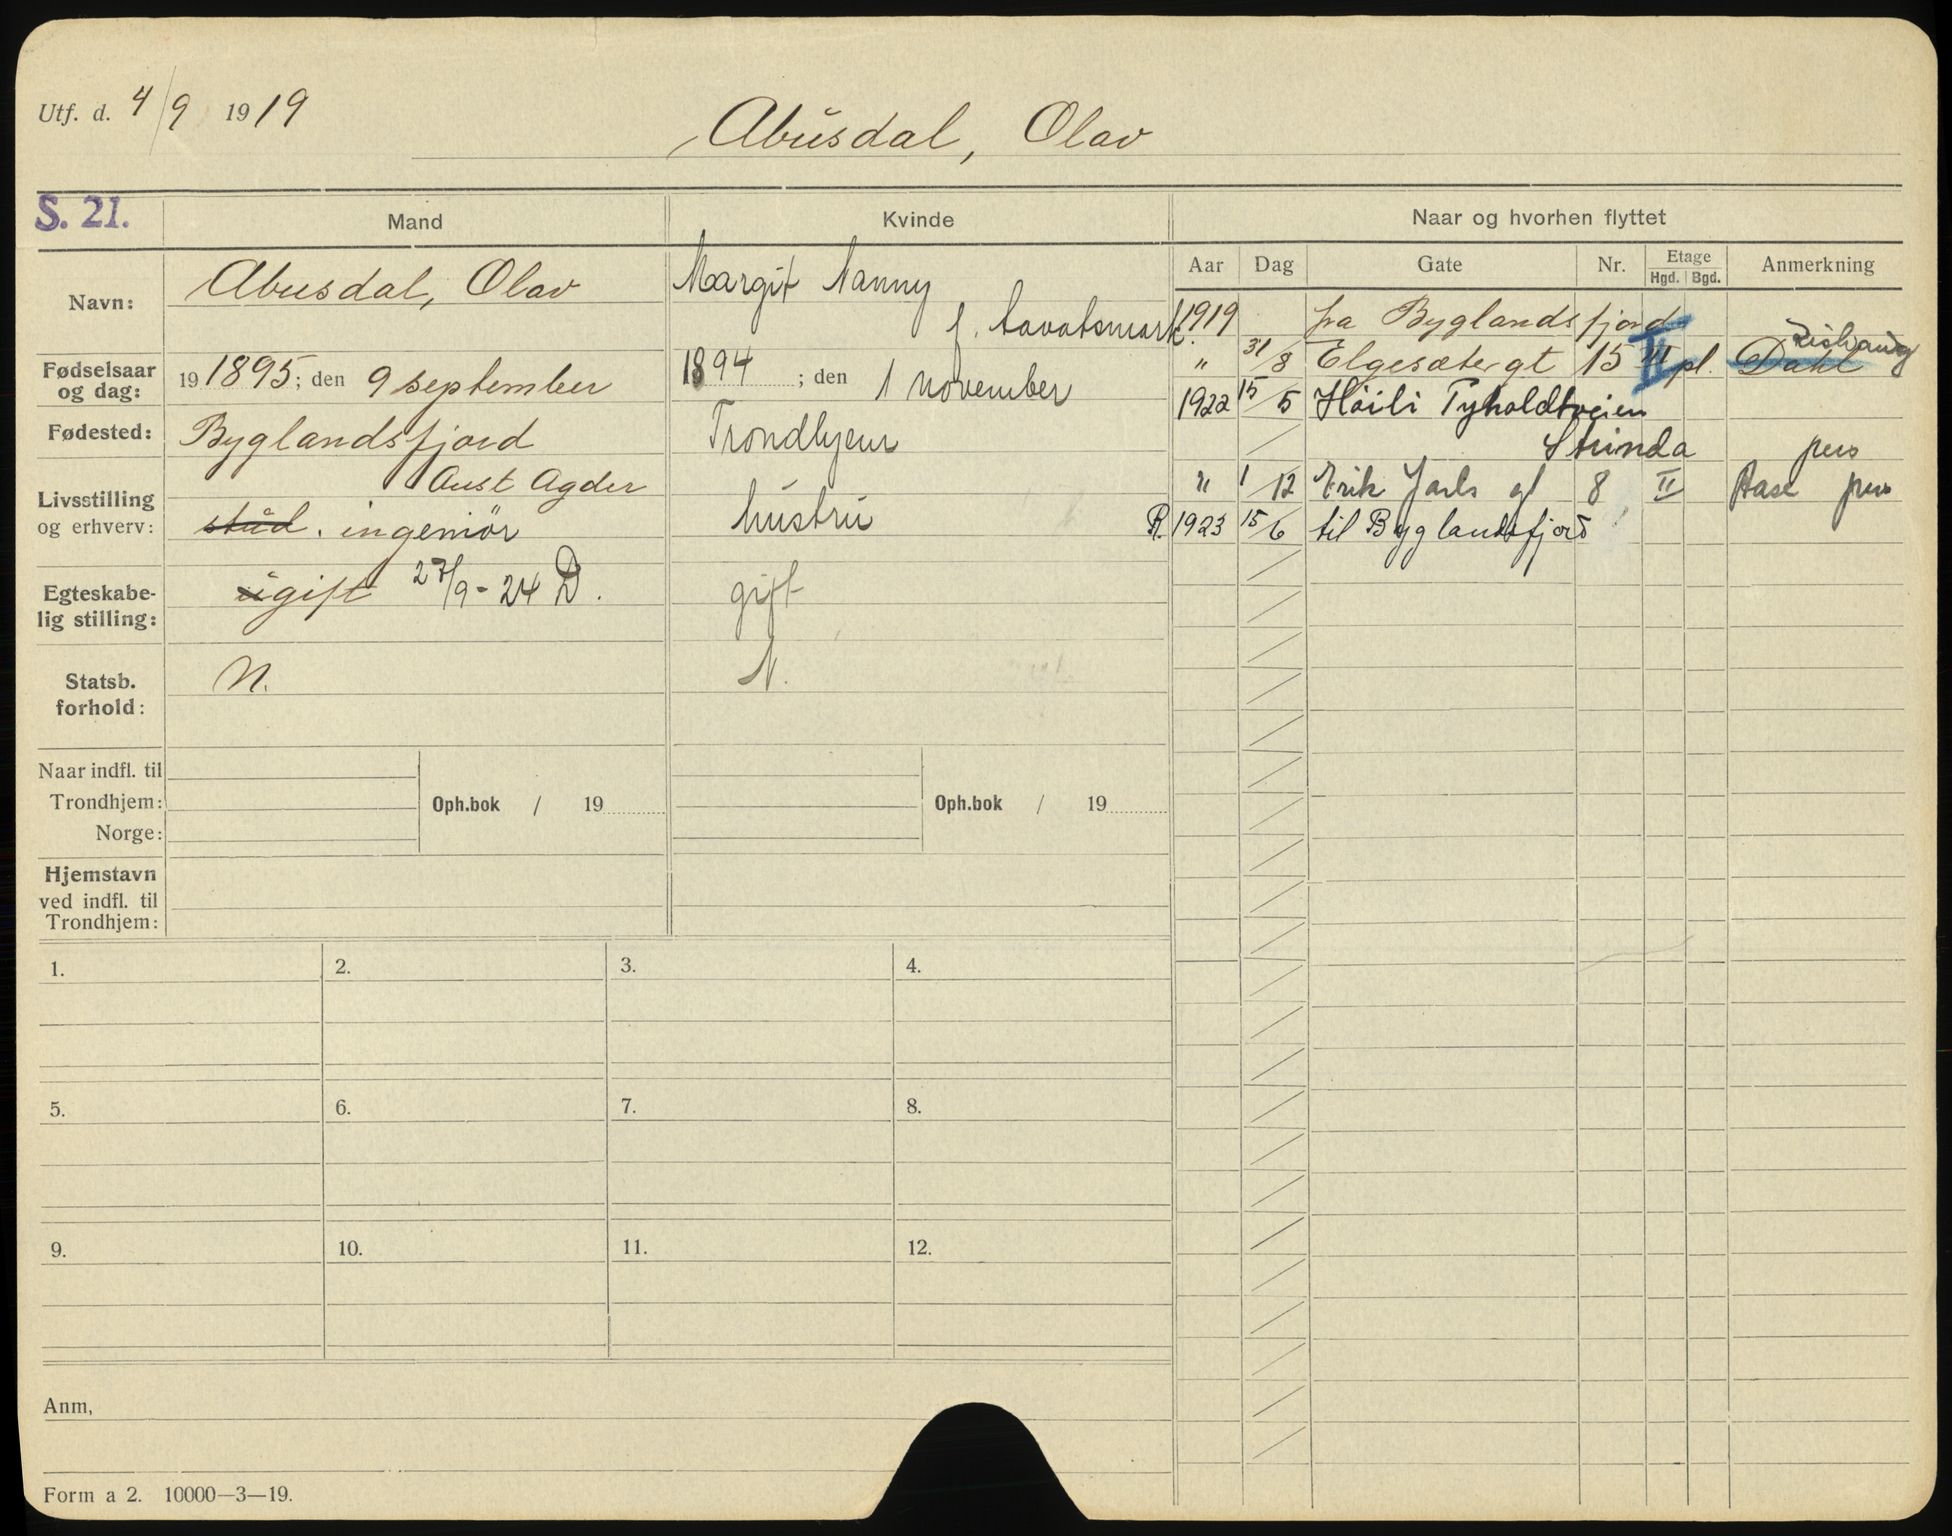 Utf. d. 4/9 1919
Abusdal, Olav
S. 21.
Mand
Kvinde
Naar og hvorhen flyttet
Aar Dag Gate Nr. Etage Hgd. Bgd. Anmerkning
Navn:
Abusdal, Olav
Margit Nanny
f.
Fødselsaar og dag:
19 1895; den 9 september
1894 ; den 1 november
Fødested:
Byglandsfjord
Aust Agder
Trondhjem
Livsstilling og erhverv:
stud. ingeniör
hustru
Egteskabelig stilling:
ugift 27/9-24 D.
gift
Statsb. forhold:
N.
N.
Naar indfl. til
Trondhjem:
Norge:
Oph.bok / 19
Oph.bok / 19
Hjemstavn
ved indfl. til
Trondhjem:
1919 fra Byglandsfjord
" 31/8 Elgesæter gt 15 III II pl. Dahl
1922 15/5 Höili Tyholdtveien
Strinda pers
" 1/12 Erik Jarls gt 8 II Aase pers
R. 1923 15/6 til Byglandsfjord
1. 2. 3. 4.
5. 6. 7. 8.
9. 10. 11. 12.
Anm,
Form a 2. 10000—3—19.